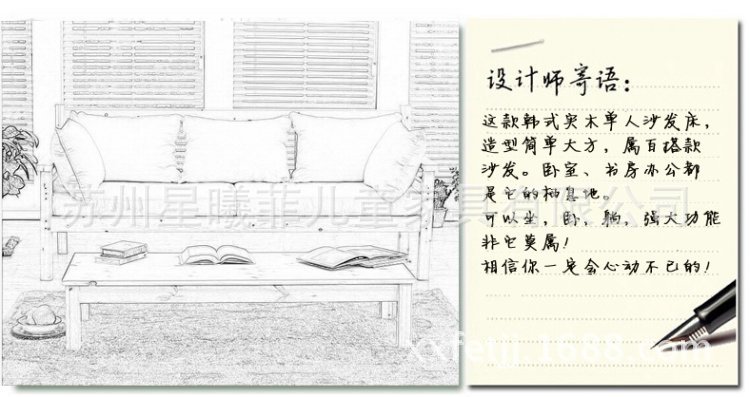 设计师寄语：
这款韩式实木单人沙发床，
造型简单大方，属百搭款
沙发。卧室、书房办公都
是它的栖息地。
可以坐，卧，躺，强大功能
非它莫属！
相信你一定会心动不已的！
苏州星曦菲儿童家具有限公司